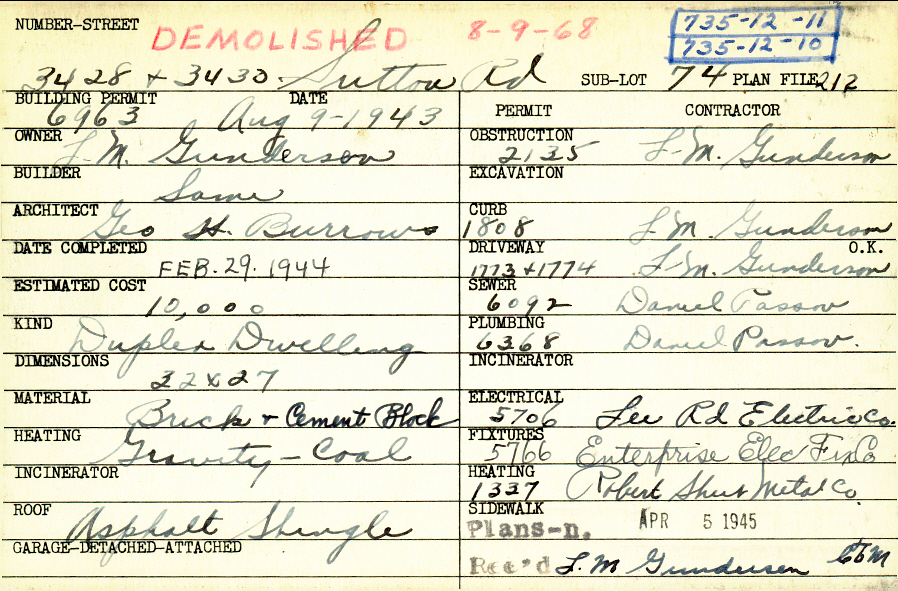 NUMBER-STREET DEMOLISHED 8-9-68 735-12-11
735-12-10
3428 + 3430 Sutton Rd SUB-LOT 74 PLAN FILE 212
BUILDING PERMIT DATE PERMIT CONTRACTOR
6963 Aug 9-1943
OWNER L.M. Gunderson OBSTRUCTION 2135 L-M. Gunderson
BUILDER Same EXCAVATION
ARCHITECT Geo H. Burrows CURB 1808 L M. Gunderson
DATE COMPLETED FEB. 29. 1944 DRIVEWAY 1773+1774 L-M. Gunderson O.K.
ESTIMATED COST 10,000 SEWER 6092 Daniel Passov
KIND Duplex Dwelling PLUMBING 6368 Daniel Passov.
DIMENSIONS 32x27 INCINERATOR
MATERIAL Brick + Cement Block ELECTRICAL 5706 Lee Rd Electric Co.
HEATING Gravity-Coal FIXTURES 5766 Enterprise Elec Fix Co
INCINERATOR HEATING 1337 Robert Sheet Metal Co
ROOF Asphalt Shingle SIDEWALK Plans-n. APR 5 1945
GARAGE-DETACHED-ATTACHED Rec'd L.M Gundersen